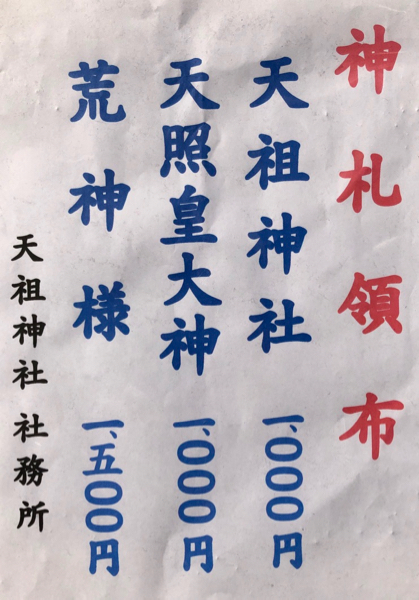 神札領布
天祖神社 一、〇〇〇円
天照皇大神 一、〇〇〇円
荒神様 一、五〇〇円
天祖神社 社務所